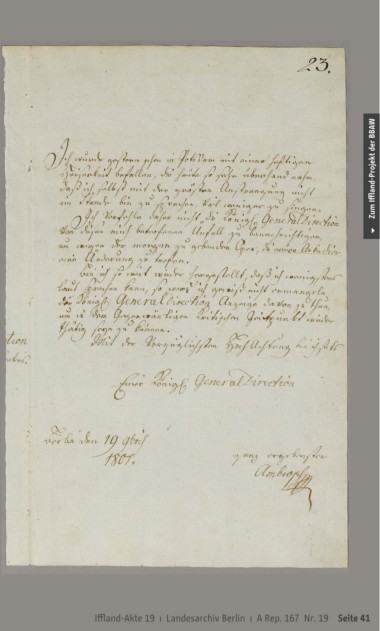 23.
Ich wurde gestern schon in Potsdam mit einer heftigen
Heiserkeit befallen, die heute so sehr überhand nahm,
daß ich selbst mit der größten Anstrengung nicht
im Stande bin zu sprechen, viel weniger zu singen.
Ich verfehle daher nicht, die Königl. General Direction
von diesem mich betroffenen Anfall zu benachrichtigen,
um wegen der morgen zu gebenden Oper,
eine Änderung zu treffen.
Bin ich so weit wieder hergestellt, daß ich wenigstens
laut sprechen kann, so werde ich gewiß nicht ermangeln,
der Königl. General Direction Anzeige davon zu thun,
um in dem gegenwärtigen kritischen Zeitpunkt wieder
thätig seyn zu können.
Mit der vorzüglichsten Hochachtung
Einer Königl. General Direction
den 19
1807.
ganz ergebenster
Ambrosch
Zum Iffland-Projekt der BBAW
Iffland-Akte 19 | Landesarchiv Berlin | A Rep. 167 Nr. 19 Seite 41